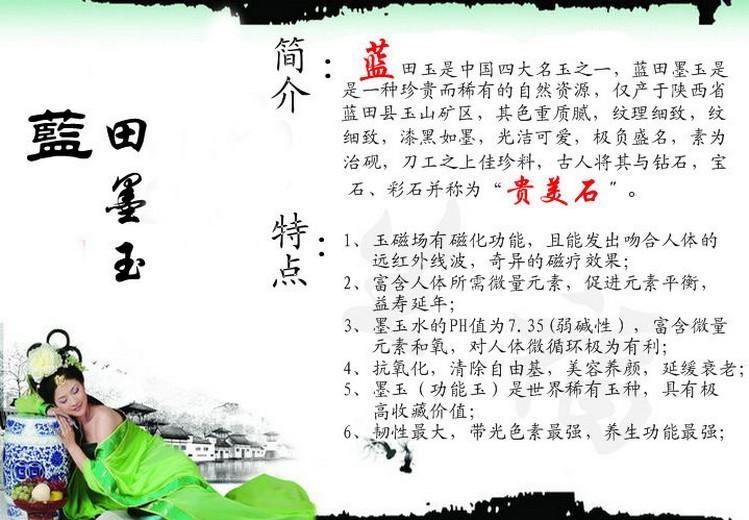 藍田墨玉
简介：
蓝田玉是中国四大名玉之一，蓝田墨玉是
是一种珍贵而稀有的自然资源，仅产于陕西省
蓝田县玉山矿区，其色重质腻，纹理细致，纹
细致，漆黑如墨，光洁可爱，极负盛名，素为
治砚，刀工之上佳珍料，古人将其与钻石，宝
石、彩石并称为“贵美石”。
特点：
1、玉磁场有磁化功能，且能发出吻合人体的
远红外线波，奇异的磁疗效果；
2、富含人体所需微量元素，促进元素平衡，
益寿延年；
3、墨玉水的PH值为7.35(弱碱性），富含微量
元素和氧，对人体微循环极为有利；
4、抗氧化，清除自由基，美容养颜，延缓衰老；
5、墨玉（功能玉）是世界稀有玉种，具有极
高收藏价值；
6、韧性最大，带光色素最强，养生功能最强；